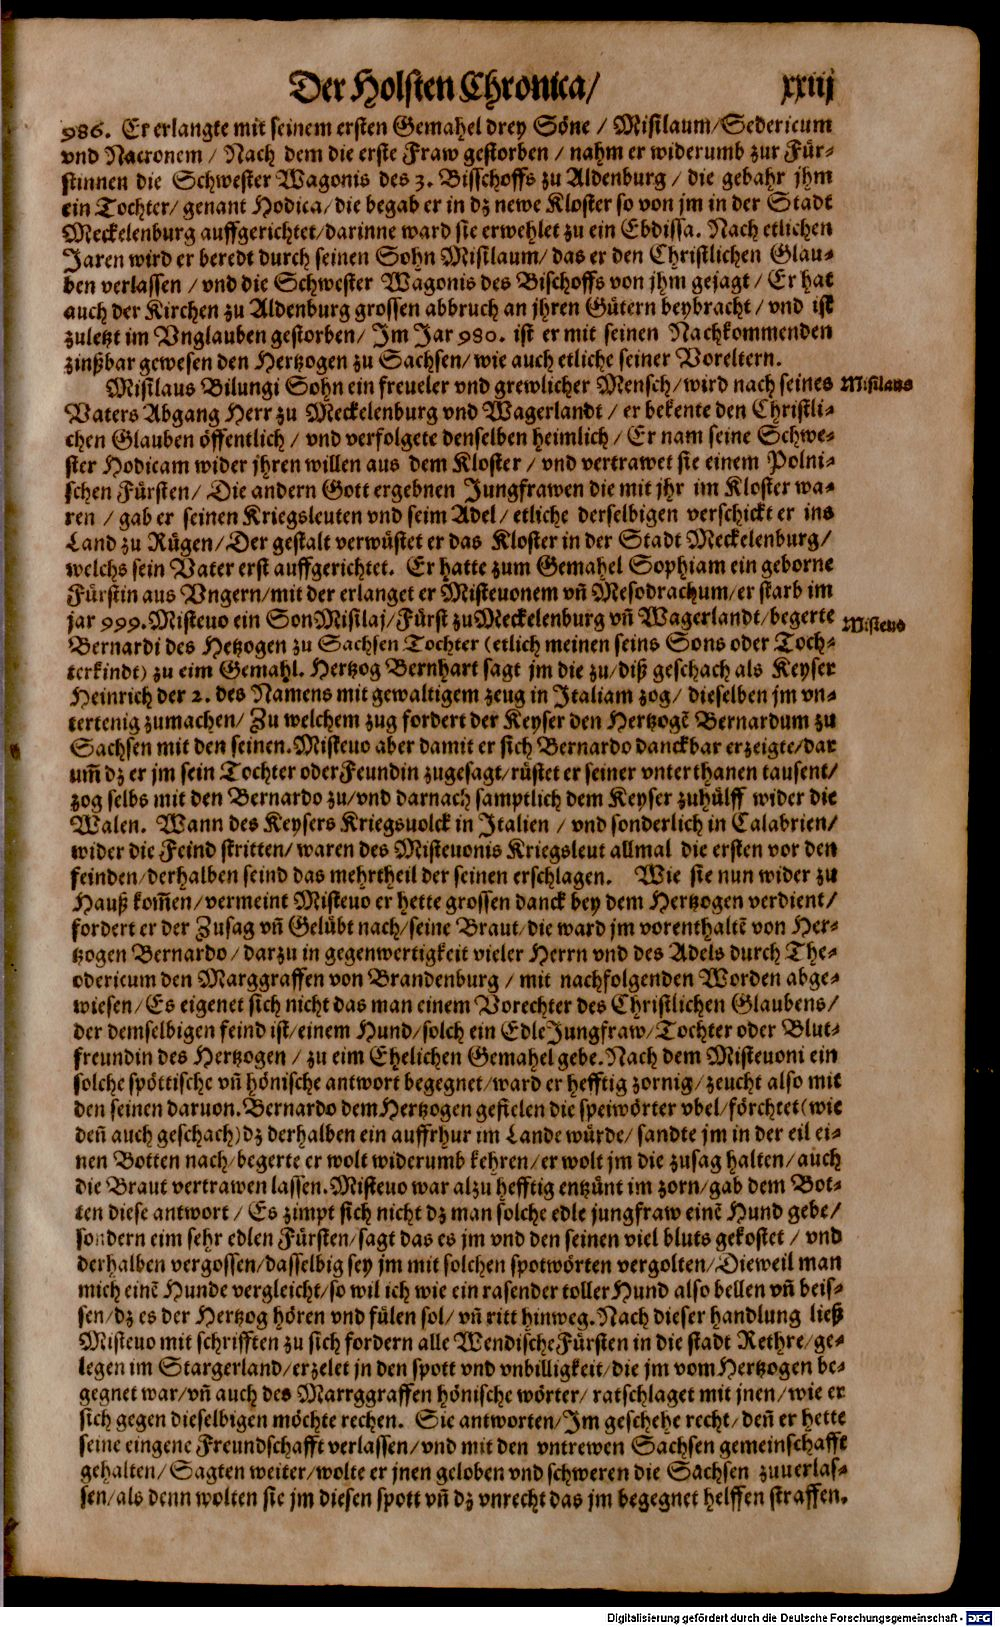 Der Holsten Chronica/ xxiij
986. Er erlangte mit seinem ersten Gemahel drey Söne / Misilaum/Sedericum
vnd Nacronem / Nach dem die erste Fraw gestorben / nahm er widerumb zur Für-
stinnen die Schwester Wagonis des 3. Bisschoffs zu Aldenburg / die gebahr jhm
ein Tochter/ genant Hodica/die begab er in dz newe Kloster so von jm in der Stadt
Meckelenburg auffgerichtet/darinne ward sie erwehlet zu ein Ebdissa. Nach etlichen
Jaren wird er beredt durch seinen Sohn Misilaum/ das er den Christlichen Glau-
ben verlassen / vnd die Schwester Wagonis des Bischoffs von jhm gejagt / Er hat
auch der Kirchen zu Aldenburg grossen abbruch an jhren Gütern beybracht / vnd ist
zuletzt im Vnglauben gestorben/ Im Jar 980. ist er mit seinen Nachkommenden
zinßbar gewesen den Hertzogen zu Sachsen/ wie auch etliche seiner Voreltern.
Misilaus Bilungi Sohn ein freueler vnd grewlicher Mensch/ wird nach seines
Misilaus
Vaters Abgang Herr zu Meckelenburg vnd Wagerlandt / er bekente den Christli-
chen Glauben öffentlich / vnd verfolgete denselben heimlich / Er nam seine Schwe-
ster Hodicam wider jhren willen aus dem Kloster / vnd vertrawet sie einem Polni-
schen Fürsten / Die andern Gott ergebnen Jungfrawen die mit jhr im Kloster wa-
ren / gab er seinen Kriegsleuten vnd seim Adel / etliche derselbigen verschickt er ins
Land zu Rügen/ Der gestalt verwüstet er das Kloster in der Stadt Meckelenburg/
welchs sein Vater erst auffgerichtet. Er hatte zum Gemahel Sophiam ein geborne
Fürstin aus Vngern/mit der erlanget er Misteuonem vñ Mesodrachum/er starb im
jar 999. Misteuo ein Son Misilaj/ Fürst zu Meckelenburg vñ Wagerlandt/ begerte
Misteuo
Bernardi des Hetzogen zu Sachsen Tochter (etlich meinen seins Sons oder Toch-
terkindt) zu eim Gemahl. Hertzog Bernhart sagt jm die zu/ diß geschach als Keyser
Heinrich der 2. des Namens mit gewaltigem zeug in Italiam zog/ dieselben jm vn-
tertenig zumachen/ Zu welchem zug fordert der Keyser den Hertzogē Bernardum zu
Sachsen mit den seinen. Misteuo aber damit er sich Bernardo danckbar erzeigte/dar
um̃ dz er jm sein Tochter oder Feundin zugesagt/rüstet er seiner vnterthanen tausent/
zog selbs mit den Bernardo zu/vnd darnach samptlich dem Keyser zuhülff wider die
Walen. Wann des Keysers Kriegsuolck in Italien / vnd sonderlich in Calabrien/
wider die Feind stritten/ waren des Misteuonis Kriegsleut allmal die ersten vor den
feinden/derhalben seind das mehrtheil der seinen erschlagen. Wie sie nun wider zu
Hauß kom̃en/vermeint Misteuo er hette grossen danck bey dem Hertzogen verdient/
fordert er der Zusag vñ Gelübt nach/seine Braut/die ward jm vorenthaltē von Her-
tzogen Bernardo / darzu in gegenwertigkeit vieler Herrn vnd des Adels durch The-
odericum den Marggraffen von Brandenburg / mit nachfolgenden Worden abge-
wiesen/ Es eigenet sich nicht das man einem Vorechter des Christlichen Glaubens/
der demselbigen feind ist/einem Hund/solch ein Edle Jungfraw/ Tochter oder Blut-
freundin des Hertzogen / zu eim Ehelichen Gemahel gebe. Nach dem Misteuoni ein
solche spöttische vñ hönische antwort begegnet/ward er hefftig zornig/ zeucht also mit
den seinen daruon. Bernardo dem Hertzogen gefielen die speiwörter vbel/förchtet (wie
deñ auch geschach) dz derhalben ein auffrhur im Lande würde/ sandte jm in der eil ei-
nen Botten nach/begerte er wolt widerumb kehren/er wolt jm die zusag halten/ auch
die Braut vertrawen lassen. Misteuo war alzu hefftig entzünt im zorn/ gab dem Bot-
ten diese antwort / Es zimpt sich nicht dz man solche edle jungfraw einē Hund gebe/
sondern eim sehr edlen Fürsten/ sagt das es jm vnd den seinen viel bluts gekostet / vnd
derhalben vergossen/dasselbig sey jm mit solchen spotwörten vergolten/ Dieweil man
mich einē Hunde vergleicht/so wil ich wie ein rasender toller Hund also bellen vñ beis-
sen/dz es der Hertzog hören vnd fülen sol/ vñ ritt hinweg. Nach dieser handlung ließ
Misteuo mit schrifften zu sich fordern alle Wendische Fürsten in die stadt Rethre/ ge-
legen im Stargerland/ erzelet jn den spott vnd vnbilligkeit/die jm vom Hertzogen be-
gegnet war/vñ auch des Marrggraffen hönische wörter/ ratschlaget mit jnen/wie er
sich gegen dieselbigen möchte rechen. Sie antworten/Im geschehe recht/ deñ er hette
seine eingene Freundschafft verlassen/vnd mit den vntrewen Sachsen gemeinschafft
gehalten/ Sagten weiter/wolte er jnen geloben vnd schweren die Sachsen zuuerlas-
sen/als denn wolten sie jm diesen spott vñ dz vnrecht das jm begegnet helffen straffen.
Digitalisierung gefördert durch die Deutsche Forschungsgemeinschaft - DFG